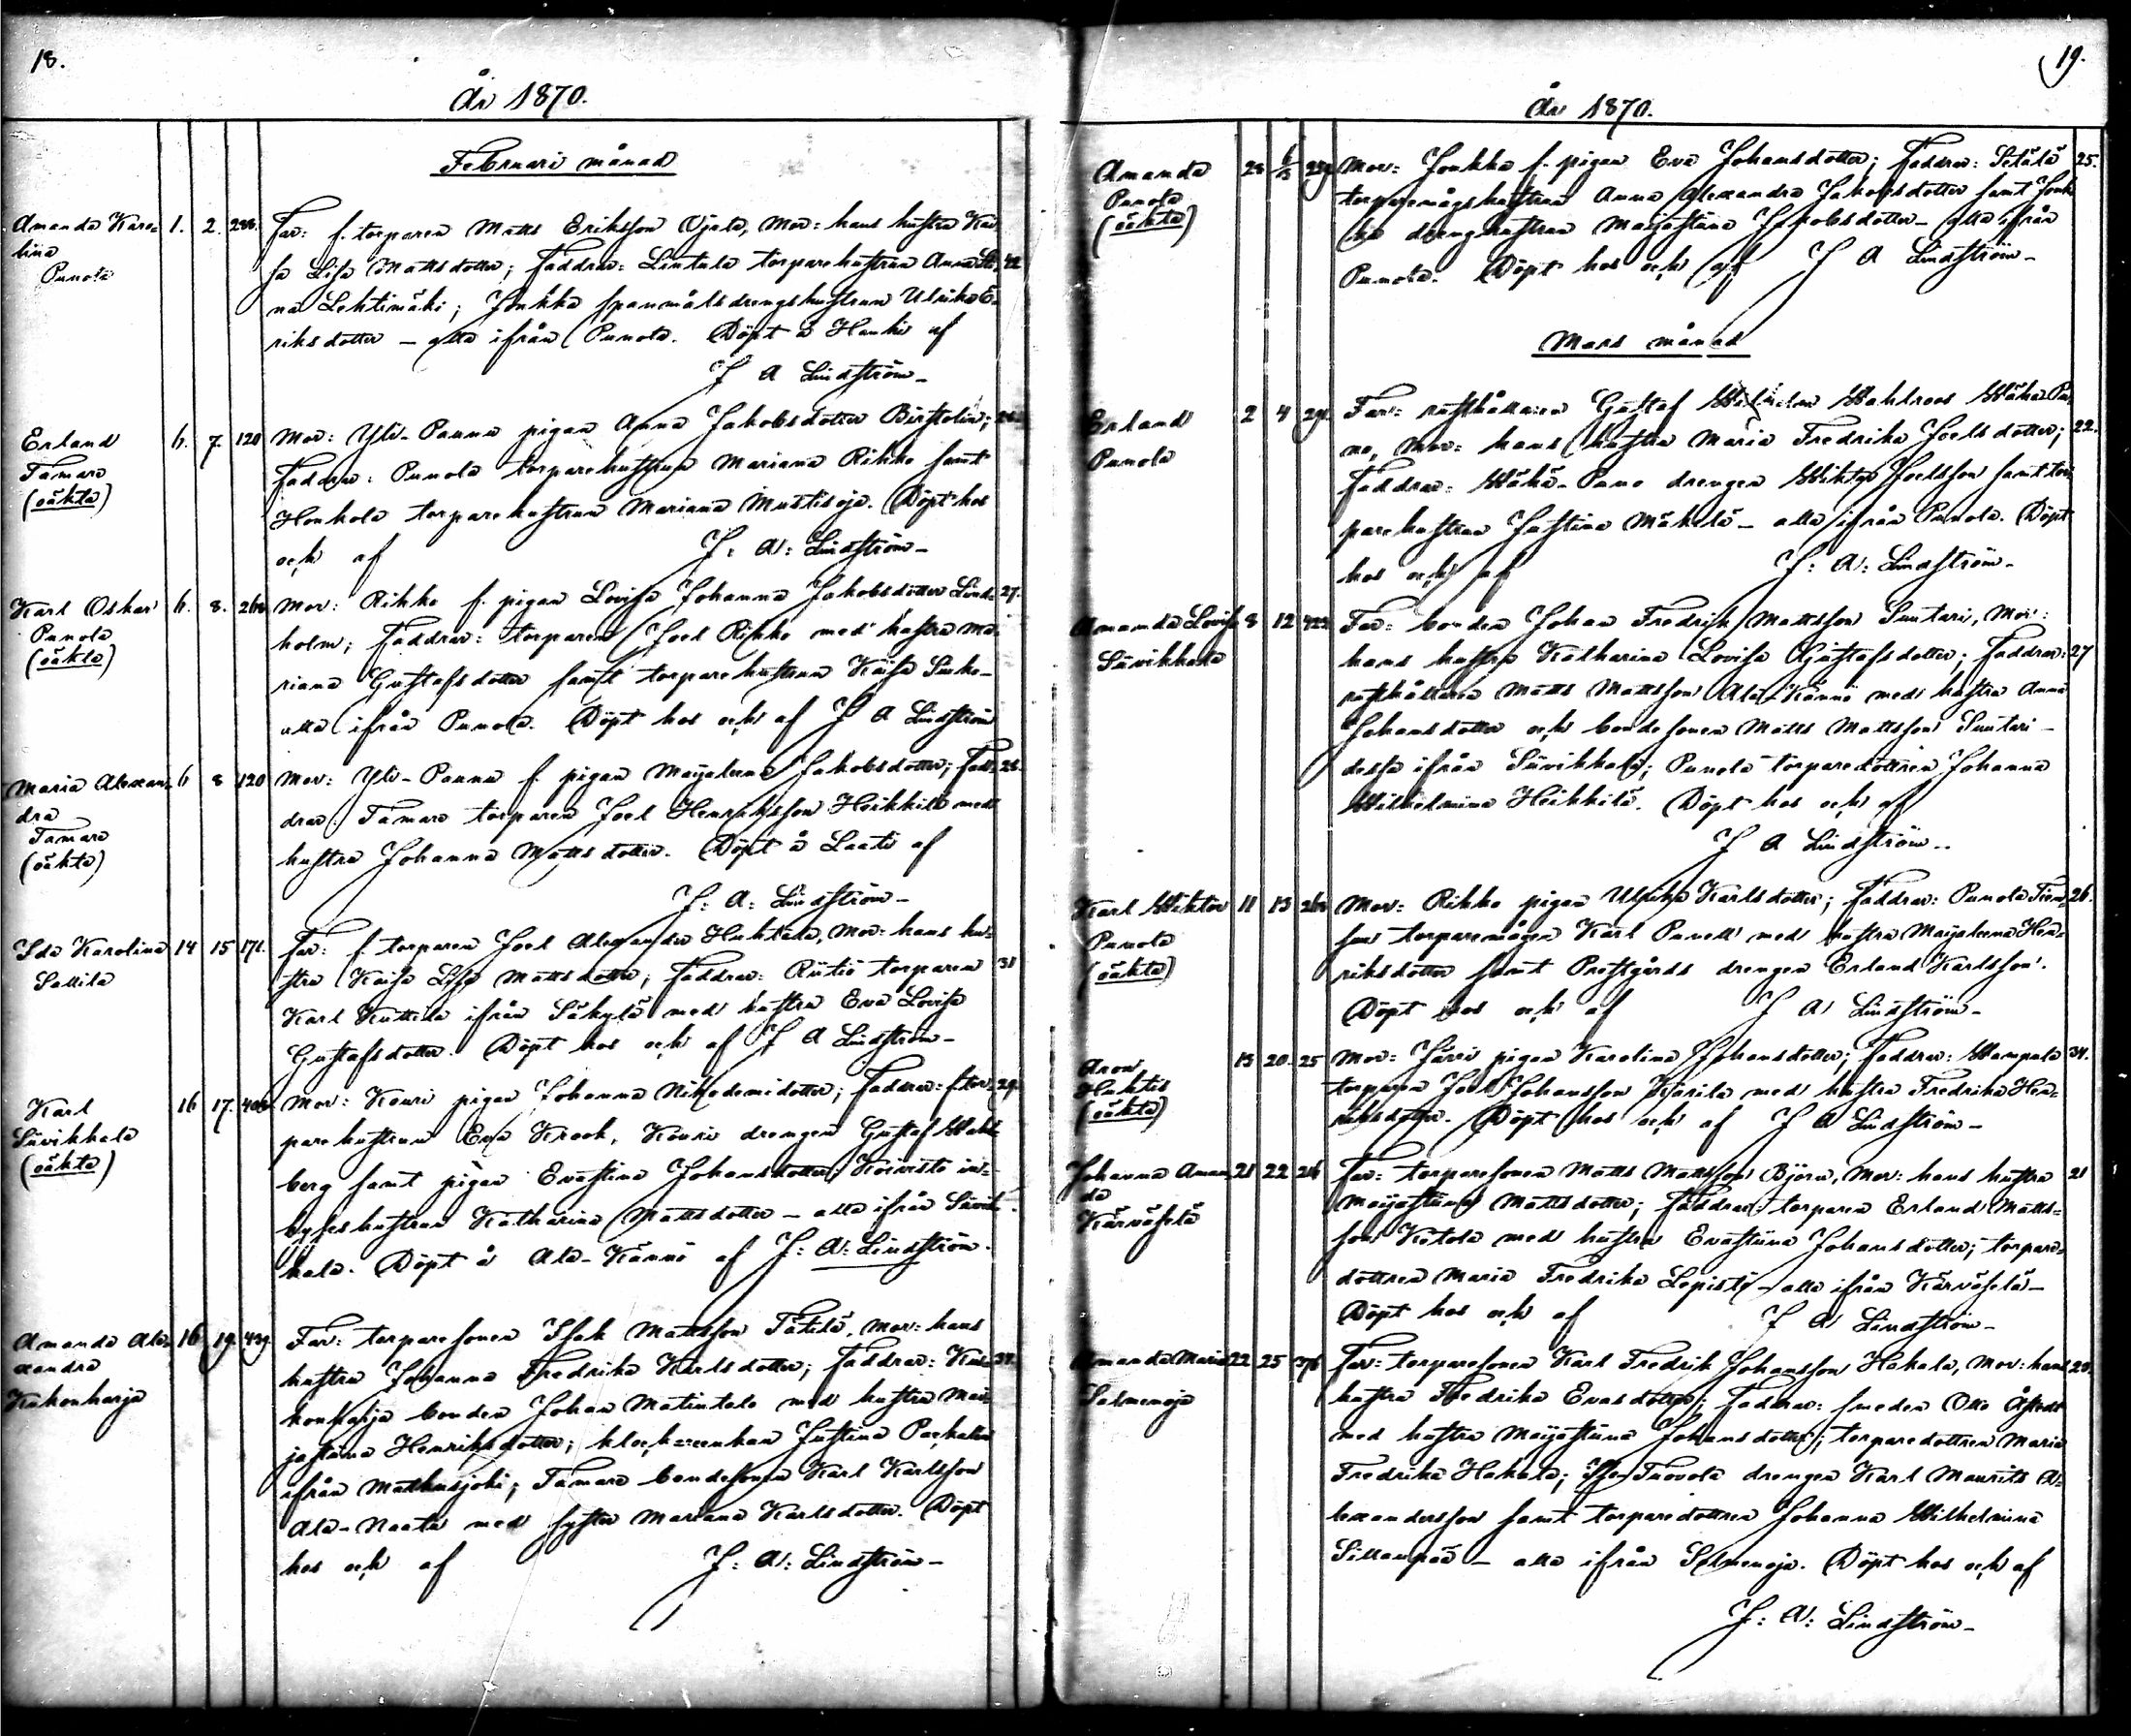 18.
År 1870.
Februari månad
Amanda Karo-
liina
Punola
1. 2. 286.
Far: f. torparen Matts Eriksson Ojala, Mor: hans hustru Kai-
sa Lisa Mattsdotter; Faddrar: Lintula torparehustrun Anna Sti- 42
na Lehtimäki; Jonkka spanmålsdrengshustrun Ulrika E-
riksdotter – alla ifrån Punola. Döpt å Hanki af
J A Lindström –
Erland
Tamare
(oäkta)
6. 7. 120
Mor: Yli-Paunu pigan Anna Jakobsdotter Birstolin;
Faddrar: Punola torparehustrun Mariana Rikko samt
Honkola torparehustrun Mariana Mustisoja. Döpt hos
och af J: A: Lindström –
Karl Oskar
Punola
(oäkta)
6. 8. 268
Mor: Rikko f. pigan Lovisa Johanna Jakobsdotter Lind- 27.
holm; Faddrar: torparen Joel Rikko med hustru Ma-
riana Gustafsdotter samt torparehustrun Kaisa Suho –
alla ifrån Punola. Döpt hos och af J A Lindström
Maria Alexan-
dra
Tamare
(oäkta)
6 8 120
Mor: Yli-Paunu f. pigan Majaleena Jakobsdotter; Fad- 28.
drar: Tamare torparen Joel Henriksson Heikkilä med
hustru Johanna Mattsdotter. Döpt å Laati af
J: A: Lindström –
Ida Karolina
Sallila
14 15 171.
Far: f. torparen Joel Alexander Huhtala, Mor: hans hu-
stru Kaisa Lisa Mattsdotter; Faddrar: Riitiö torparen 31
Karl Kuttila ifrån Säkylä med hustru Eva Lovisa
Gustafsdotter. Döpt hos och af J A Lindström –
Karl
Suvikkala
(oäkta)
16 17. 408
Mor: Kouri pigan Johanna Nikodemidotter; Faddrar: f. tor- 29.
parehustrun Eva Krook, Kouri drengen Gustaf Wahl-
berg samt pigan Evastina Johansdotter; Koivisto in-
hyseshustrun Katharina Mattsdotter – alla ifrån Suvik-
kala. Döpt å Ala-Kännö af J: A: Lindström.
Amanda Ale-
xandra
Kukonharja
16 19. 439.
Far: torparesonen Isak Mattsson Tätilä, Mor: hans
hustru Johanna Fredrika Karlsdotter; Faddrar: Kuk-
konharja bonden Johan Matintalo med hustru Mai-
jastina Henriksdotter; klockareenkan Justina Packalén
ifrån Mathusjoki; Tamare bondesonen Karl Karlsson
Ala-Naatu med syster Mariana Karlsdotter. Döpt
hos och af J: A: Lindström –
19.
År 1870.
Amanda
Punola
(oäkta)
28 6/3 259.
Mor: Jonkka f. pigan Eva Johansdotter; Faddrar: Setälä 25.
torparemågshustrun Anna Alexandra Jakobsdotter samt Jonk-
ka drenghustrun Maijastina Jakobsdotter – alla ifrån
Punola. Döpt hos och af J A Lindström –
Mars månad
Erland
Punola
2 4 291.
Far: rusthållaren Gustaf Wilhelm Wahlroos Wäha-Pu-
no, Mor: hans hustru Maria Fredrika Joelsdotter; 22.
Faddrar: Wähä-Puno drengen Wiktor Joelsson samt tor-
parehustrun Justina Mäkelä – alla ifrån Punola. Döpt
hos och af J: A: Lindström –
Amanda Lovisa
Suvikkala
8 12 422
Far: bonden Johan Fredrik Mattsson Suntari, Mor:
hans hustru Katharina Lovisa Gustafsdotter; Faddrar: 27
rusthållaren Matts Mattsson Ala-Kännö med hustru Anna
Johansdotter och bondesonen Matts Mattsson Suntari –
dessa ifrån Suvikkala; Punola torparedottren Johanna
Wilhelmina Heikkilä. Döpt hos och af
J A Lindström..
Karl Wiktor
Punola
(oäkta)
11 13 268
Mor: Rikko pigan Ulrika Karlsdotter; Faddrar: Punola 26.
torparemågen Karl Punell med hustru Majaleena Hen-
riksdotter samt Prestgårds drengen Erland Karlsson.
Döpt hos och af J A Lindström –
Aron
Huhtis
(oäkta)
13 20. 25
Mor: Järvi pigan Karolina Johansdotter; Faddrar: Wampula 34.
torparen Joel Johansson Kärilä med hustru Fredrika Hen-
riksdotter. Döpt hos och af J A Lindström –
Johanna Aman-
da
Kärväselä
21 22 216
Far: torparesonen Matts Mattsson Björn, Mor: hans hustru 21
Maijastiina Mattsdotter; Faddrar: torparen Erland Matts-
son Kotola med hustru Evastiina Johansdotter; torpare-
dottren Maria Fredrika Lepistö – alla ifrån Kärväselä –
Döpt hos och af J A Lindström –
Amanda Maria
Salmenoja
22 25 376
Far: torparesonen Karl Fredrik Johansson Hakala, Mor: hans 23.
hustru Fredrika Evasdotter; Faddrar: smeden Otto Åstedt
med hustru Maijastiina Johansdotter; torparedottren Maria
Fredrika Hakala; Iso-Tuovola drengen Karl Maurits A-
lexandersson samt torparedottren Johanna Wilhelmina
Sillanpää – alla ifrån Salmenoja. Döpt hos och af
J: A: Lindström –